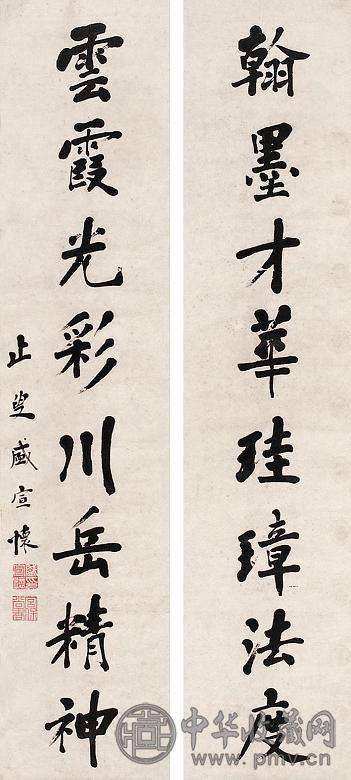 翰墨才華珪璋法度
雲霞光彩川岳精神
止叟盛宣懷
中华收藏网
www.pmv.cn